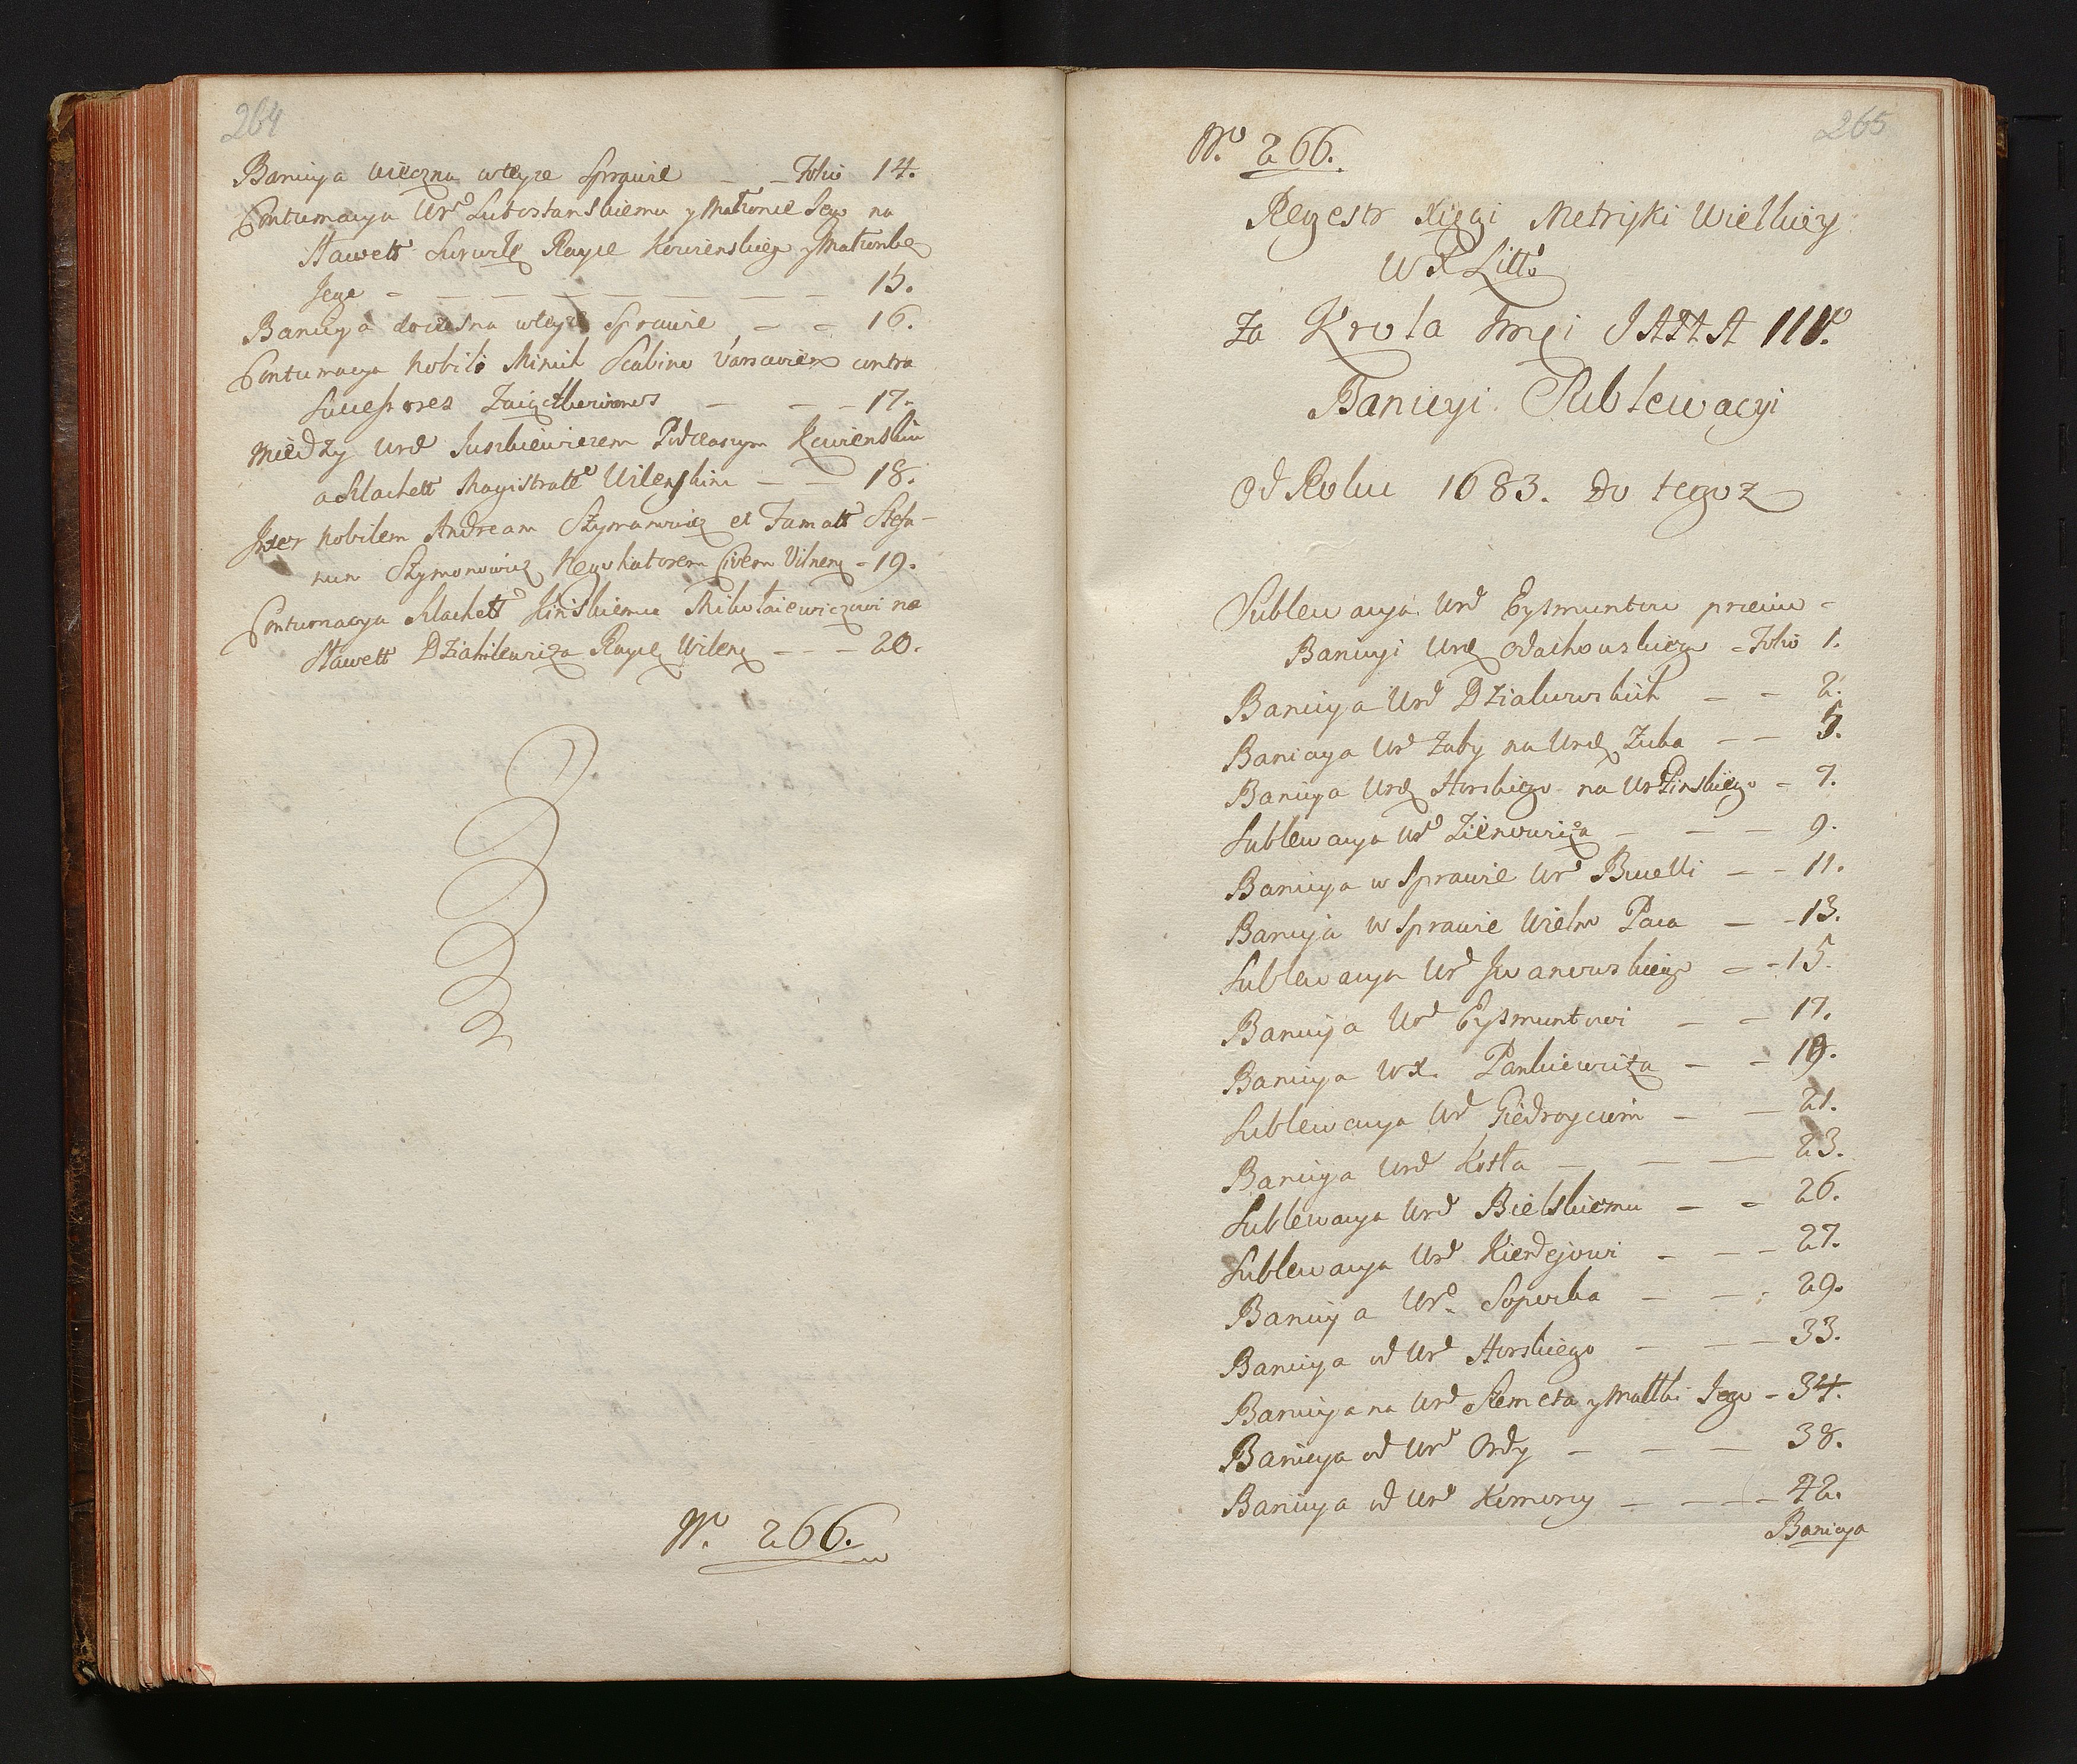 264
Banicya wieczna wteyze Sprawie — — Folio 14.
Contumacya Urd Lutostanskiemu y Małżonce Jego na
Sławett Surwiłę Rayce Kowienskiego y Małżonkę
Jego — — — — — — — — 15.
Banicya doczesna wteyze Sprawie — — 16.
Contumacya Nobili Minich Scabino Varsavien contra
Successores — — — 17.
Między Urd Juszkiewiczem Podczaszym Kowienskim
a Szlachett Magistratt Wilenskim — — 18.
Inter Nobilem Andream Szymanowicz et Famatt Stefa-
num Szymonowicz Negotiatorem Civem Vilnen — 19.
Contumacya Szlachett Kinskiemu Mikołaiewiczowi na
Sławett Dziahilewicza Rayce Wilen — — — 20.
No. 266.
265
No. 266.
Regestr Xięgi Metryki Wielkiey
W X Litto
Za Krola Jmci JANA IIIo.
Banicyi Sublewacyi
Od Roku 1683. do tegoz
Sublewacya Urd Eysmuntou przeciw -
Banicyi Urd Odachowskiego — Folio 1.
Banicya Urd Działowskich — — 2.
Banicya Urd Zaby na Urd Zuba — — 5.
Banicya Urd Horskiego na Ur Pinskiego — 7.
Sublewacya Urd Zienowicza — — — 9.
Banicya w Sprawie Urd Bruelli — — 11.
Banicya w Sprawie Wielm Paca — — 13.
Sublewacya Urd Jwanowskiego — — 15.
Banicya Urd Eysmuntowi — — 17.
Banicya W X. Pankiewicza — — 19.
Sublewacya Urd Giedroyciom — — 21.
Banicya Urd Kotła — — — 23.
Sublewacya Urd Bielskiemu — — 26.
Sublewacya Urd Kierdejowi — — — 27.
Banicya Urd. Soporka — — — 29.
Banicya od Urd Horskiego — — — 33.
Banicya na Urd Szemeta y Małłki Jego — 34.
Banicya od Urd Ordy — — — 38.
Banicya od Urd Komory — — — 42.
Banicya